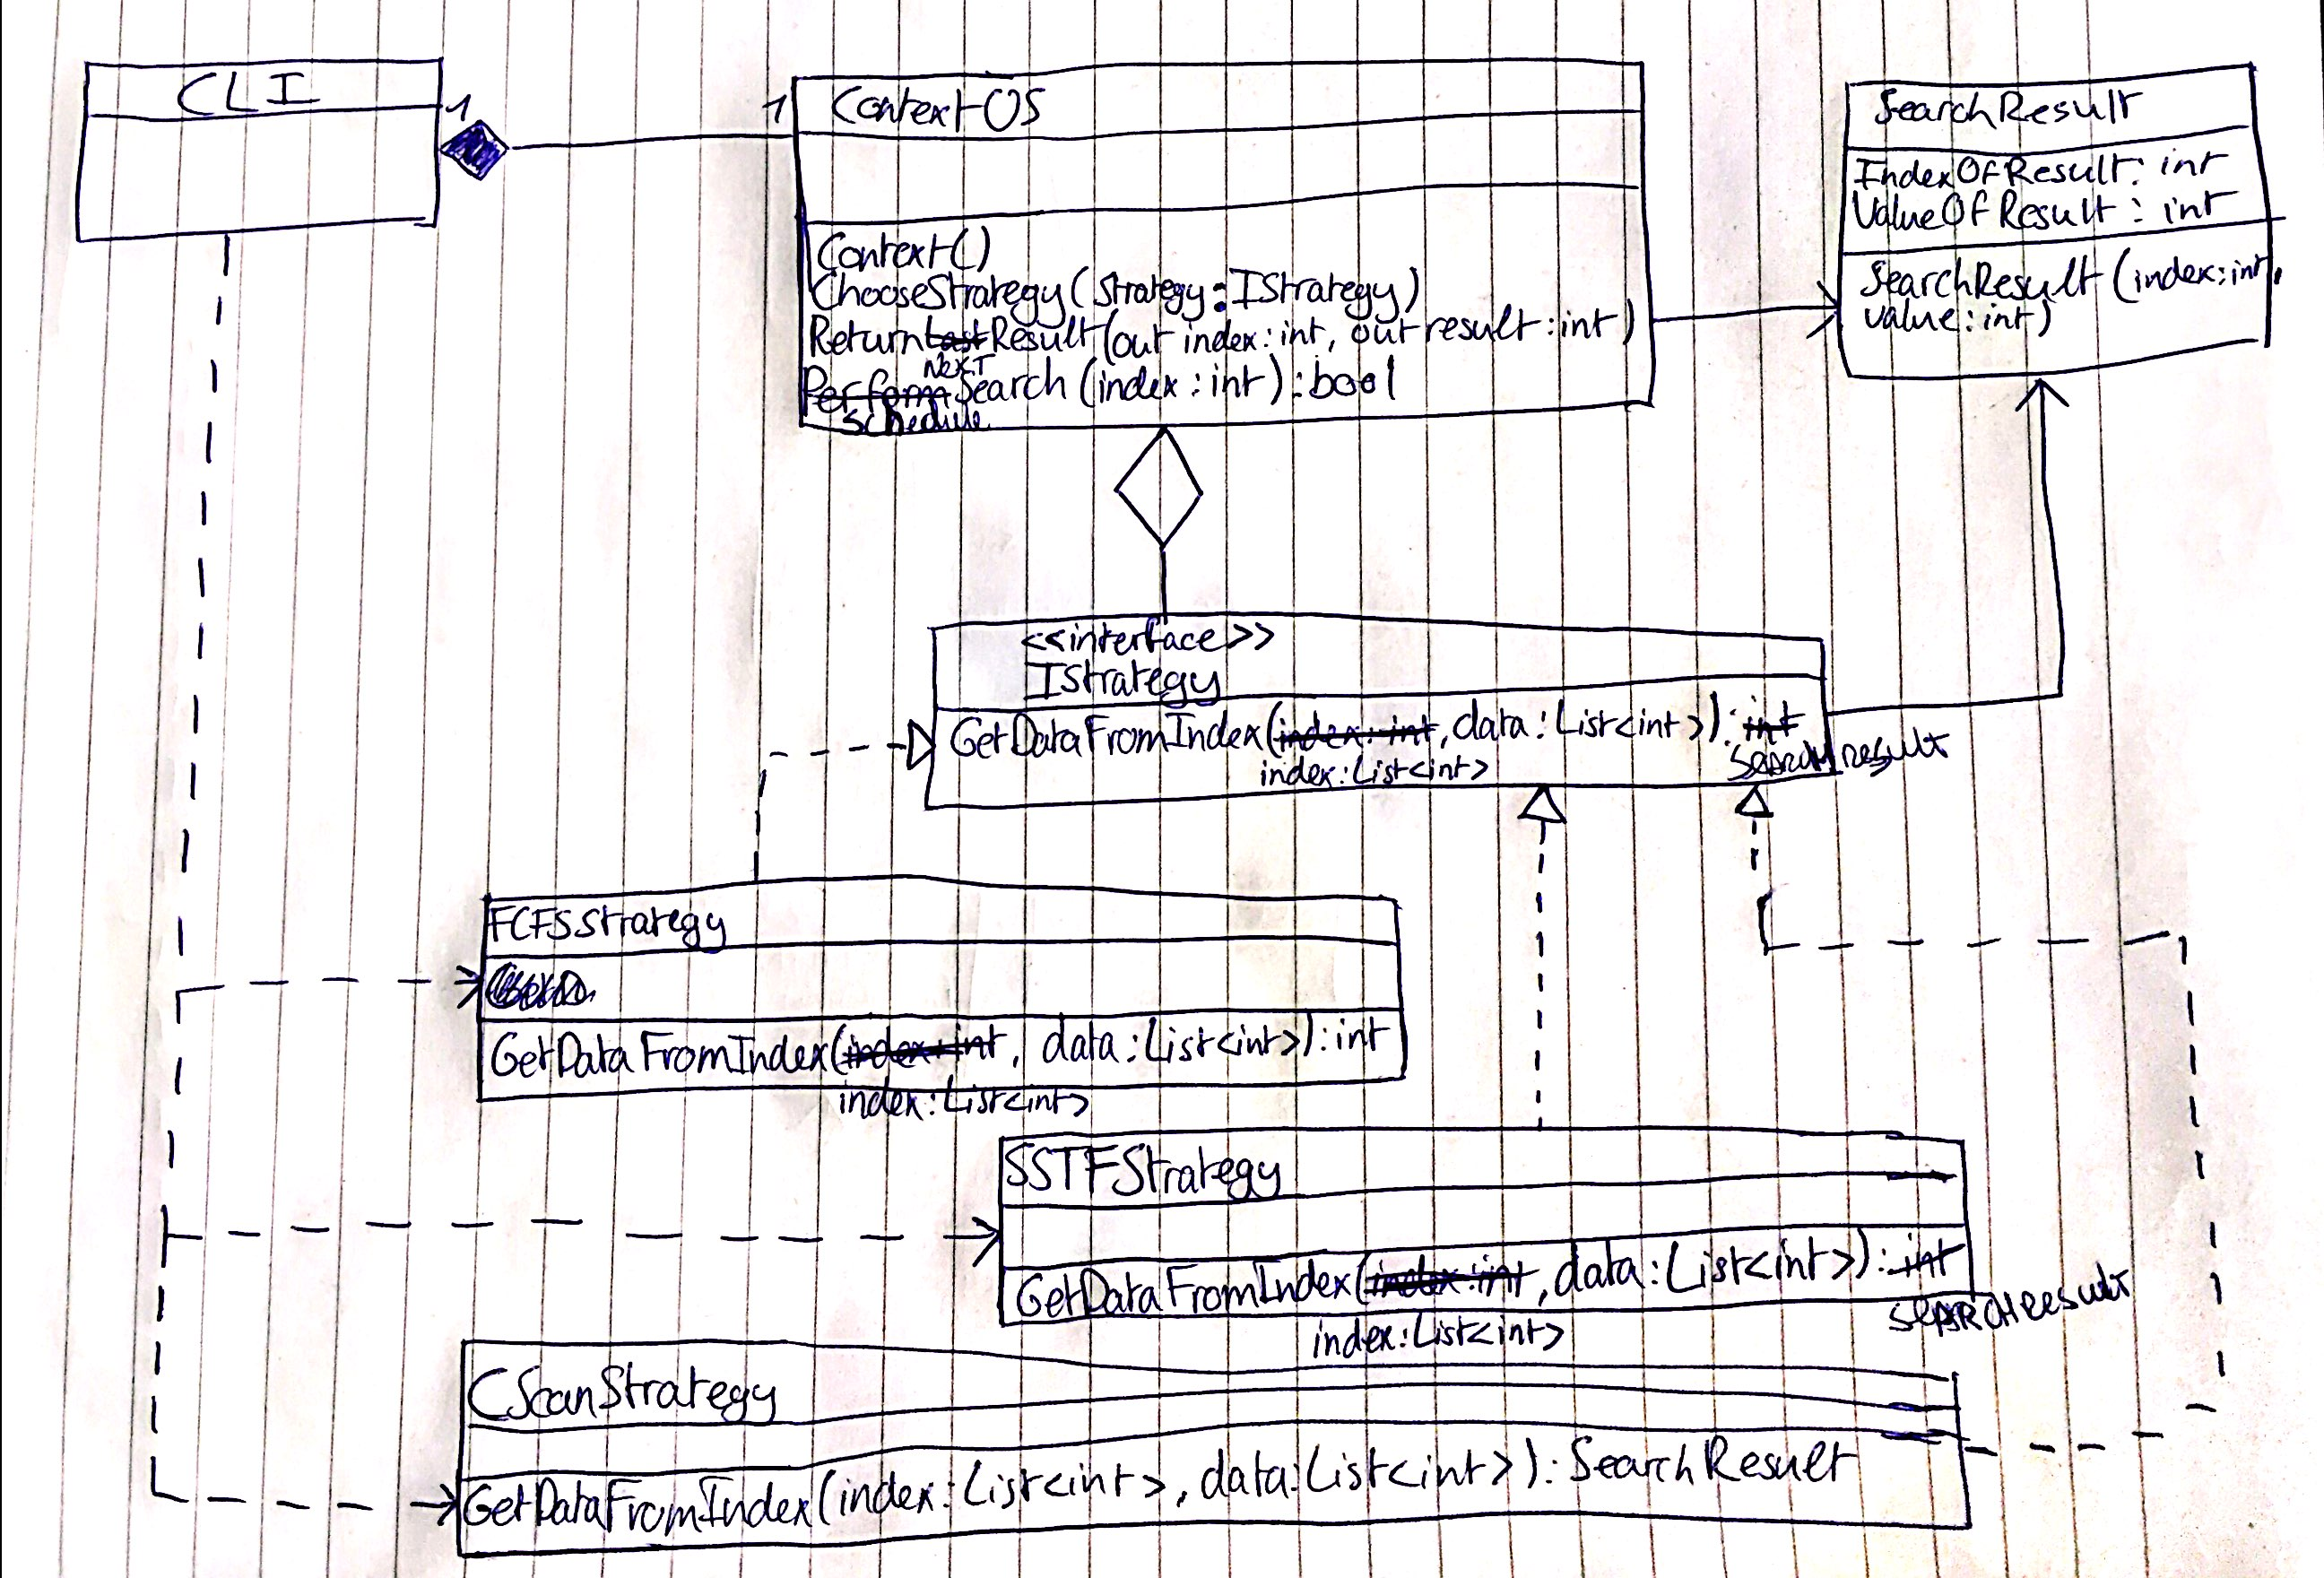 CLI
1
1
ContextOS
Context()
ChooseStrategy(Strategy:IStrategy)
ReturnLastResult(out index:int, out result:int)
Next
PerformSearch(index:int):bool
Schedule
SearchResult
IndexOfResult: int
ValueOfResult: int
SearchResult(index:int,
value:int)
<<interface>>
IStrategy
GetDataFromIndex(index:int,data:List<int>):int
index:List<int>
SearchResult
FCFSStrategy
GetDataFromIndex(index:int, data:List<int>):int
index:List<int>
SSTFStrategy
GetDataFromIndex(index:int,data:List<int>):int
index:List<int>
SEARCHResult
CScanStrategy
GetDataFromIndex(index:List<int>, data:List<int>):SearchResult